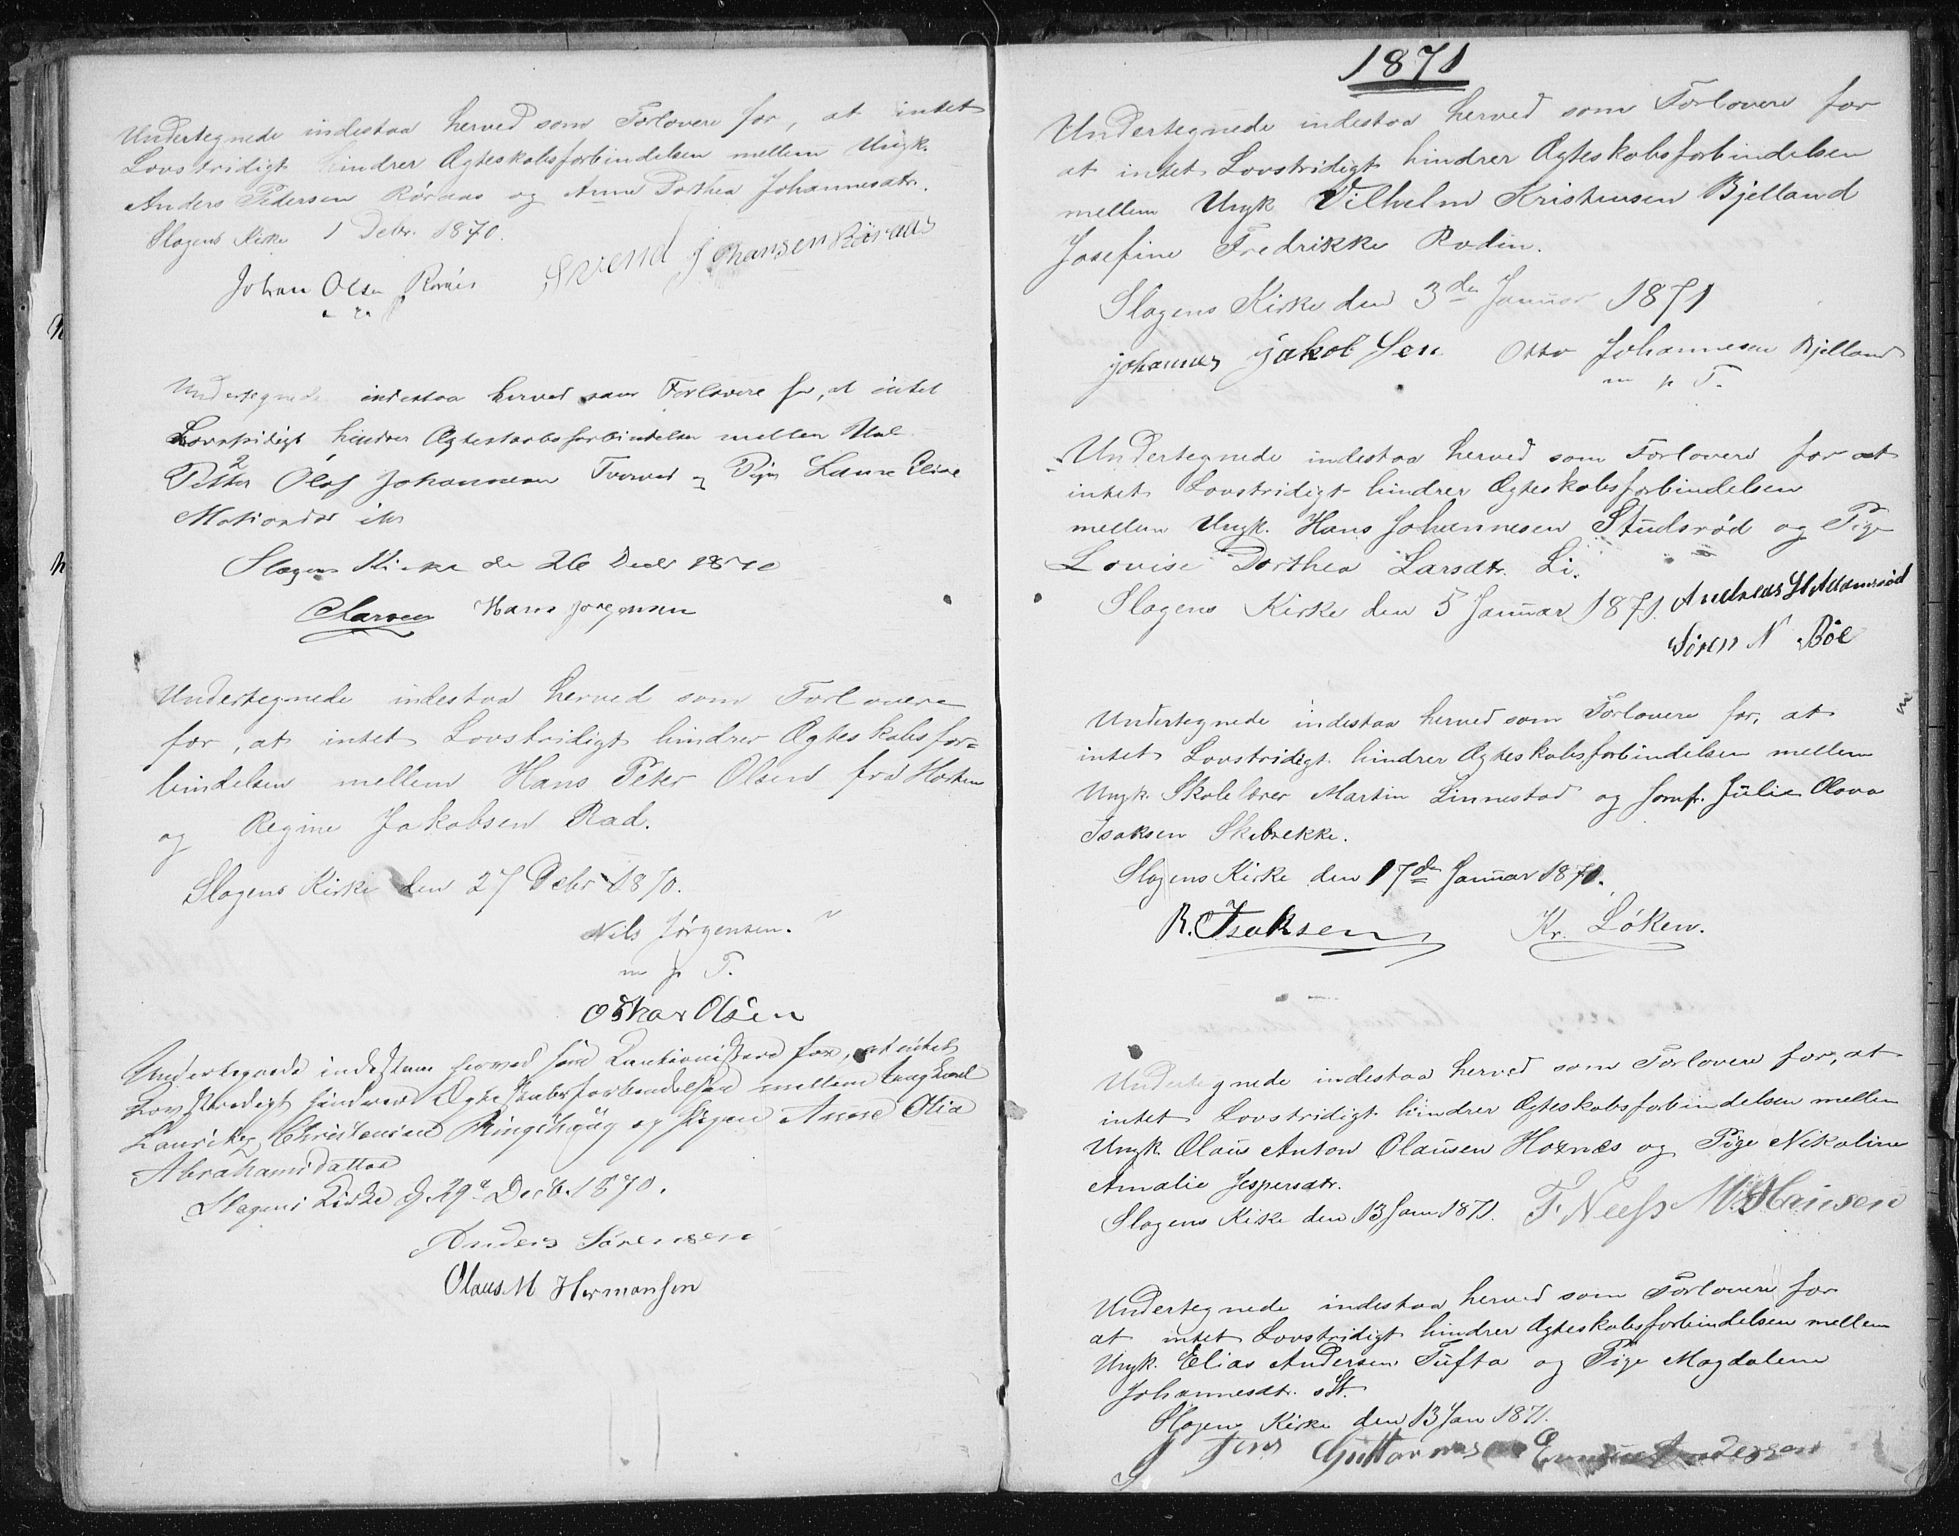 Undertegnede indestaa herved som Forlovere for, at intet
Lovstridigt hindrer Ægteskabsforbindelsen mellem Ungk.
Anders Pedersen Røraas og Anne Dorthea Johannesdtr.
Slagens Kirke 1 Debr. 1870.
Johan Olsen Svend Johansen Røraas
Undertegnede indestaa herved som Forlovere for, at intet
Lovstridigt hindrer Ægteskabsforbindelsen mellem
Petter Olaf Johannesen og Pige Laura Eline
Slagens Kirke de 26 Decbr 1870
Larsen Hans Jørgensen
Undertegnede indestaa herved som Forlovere
for, at intet Lovstridigt hindrer Ægteskabsfor=
bindelsen mellem Hans Peter Olsen fra Horten
og Regine Jakobsen Rad.
Slagens Kirke den 27 Debr 1870.
Nils Jørgensen.
m p T.
Oskar Olsen
Undertegnede indestaae herved som Kautionister for, at intet
Lovstridigt hindrer Ægteskabsforbindelsen mellem Ungkarl
Lauritz Christensen Ringshoug og Pigen Anne Olia
Abrahamsdatter
Slagens Kirke d. 29de Decb. 1870.
Anders Sørensen
Olaus M Hermansen
1871
Undertegnede indestaa herved som Forlovere for
at intet Lovstridigt hindrer Ægteskabsforbindelsen
mellem Ungk Vilhelm Kristensen Bjelland
Josefine Fredrikke Rodin.
Slagens Kirke den 3de Januar 1871
Johannes Jakobsen Otto Johannesen Bjelland
m p T.
Undertegnede indestaa herved som Forlovere for at
intet Lovstridigt hindrer Ægteskabsforbindelsen
mellem Ungk. Hans Johannesen Studsrød og Pige
Lovise Dorthea Larsdtr. Li.
Slagens Kirke den 5 Januar 1871. Andreas H Adamsrød
Søren N Bøe
Undertegnede indestaa herved som Forlovere for, at
intet Lovstridigt hindrer Ægteskabsforbindelsen mellem
Ungk. Skolelærer Martin Linnestad og Jomfr. Julie Olava
Isaksen Skibrekke.
Slagens Kirke den 17de Januar 1871.
R. Isaksen Kr. Løken.
Undertegnede indestaa herved som Forlovere for, at
intet Lovstridigt hindrer Ægteskabsforbindelsen mellem
Ungk. Olaus Anton Olausen Hoxnes og Pige Nikoline
Amalie Jespersdtr.
Slagens Kirke den 13 Jan 1871. F. Neess M. Hansen
Undertegnede indestaa herved som Forlovere for
at intet Lovstridigt hindrer Ægteskabsforbindelsen mellem
Ungk. Elias Andersen Tufta og Pige Magdalene
Johannesdtr. st.
Slagens Kirke den 13 Jan 1871.
Jens Guttormsen Andersen